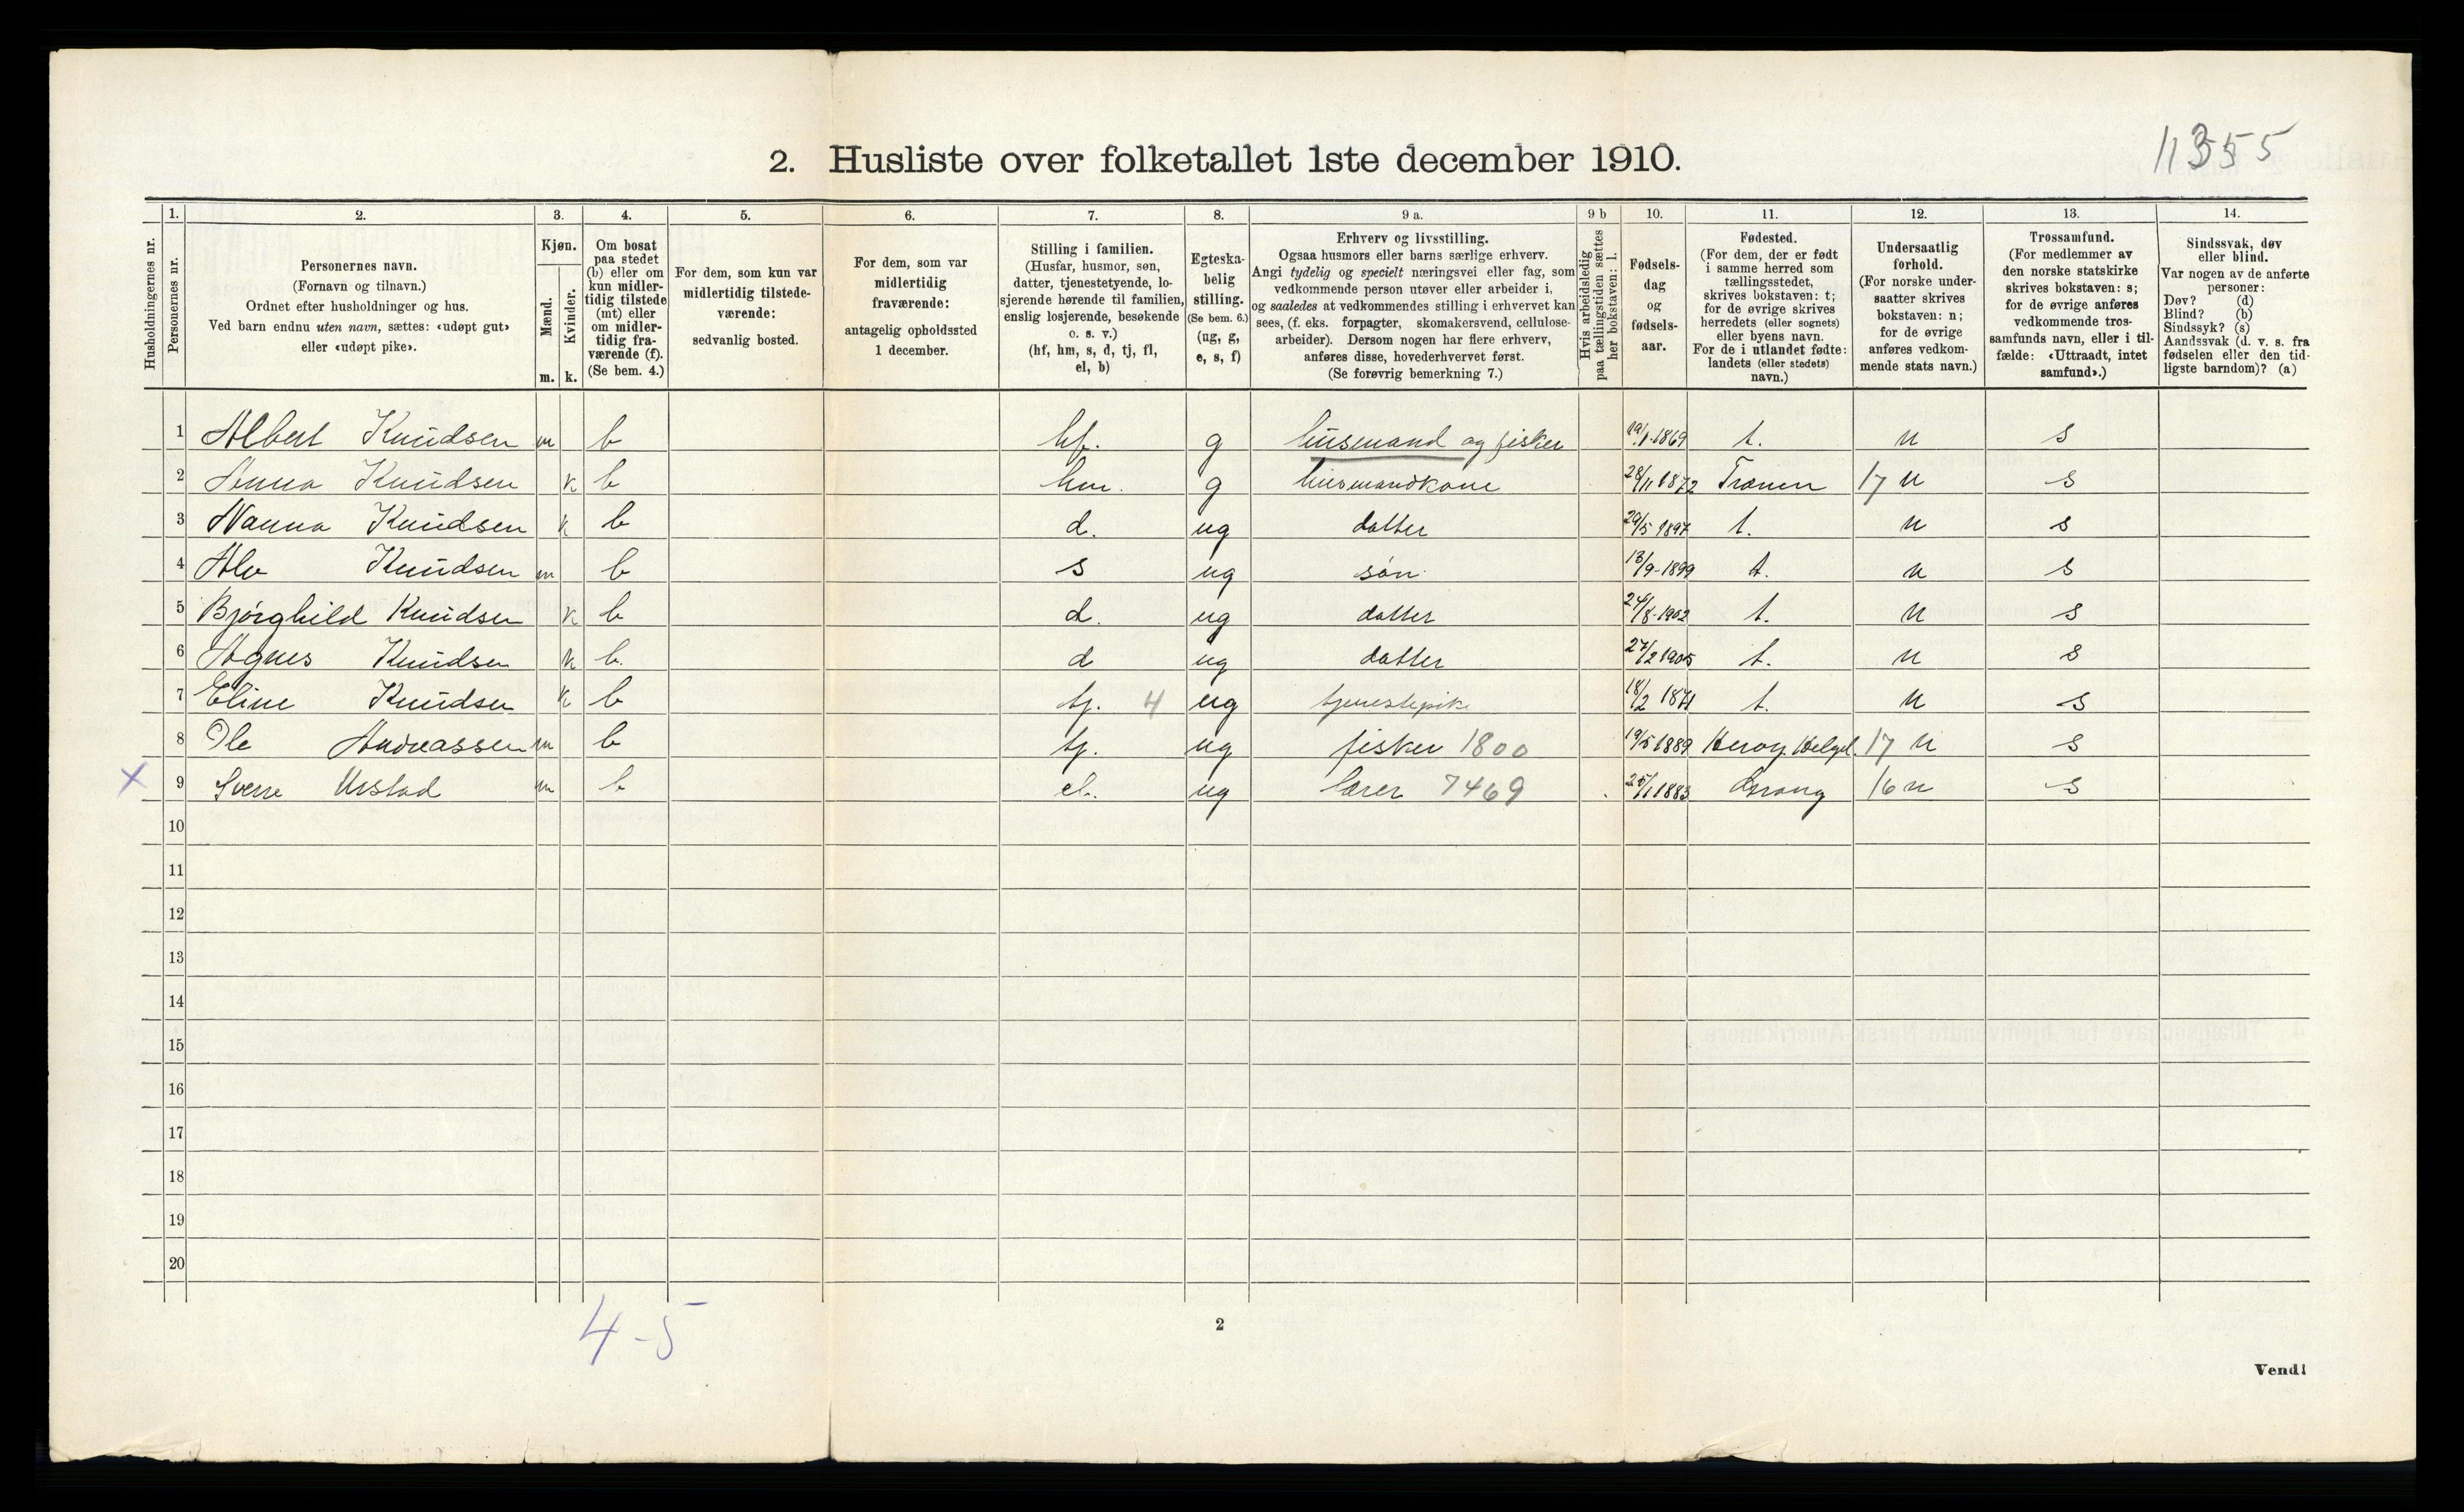 11355
2. Husliste over folketallet 1ste december 1910.
1. 2. 3. 4. 5. 6. 7. 8. 9 a. 9 b 10. 11. 12. 13. 14.
Husholdningernes nr.
Personernes nr.
Personernes navn.
(Fornavn og tilnavn.)
Ordnet efter husholdninger og hus.
Ved barn endnu uten navn, sættes: «udøpt gut»
eller «udøpt pike».
Kjøn.
Mænd.
Kvinder.
m. k.
Om bosat
paa stedet
(b) eller om
kun midler-
tidig tilstede
(mt) eller
om midler-
tidig fra-
værende (f).
(Se bem. 4.)
For dem, som kun var
midlertidig tilstede-
værende:
sedvanlig bosted.
For dem, som var
midlertidig
fraværende:
antagelig opholdssted
1 december.
Stilling i familien.
(Husfar, husmor, søn,
datter, tjenestetyende, lo-
sjerende hørende til familien,
enslig losjerende, besøkende
o. s. v.)
(hf, hm, s, d, tj, fl,
el, b)
Egteska-
belig
stilling.
(Se bem. 6.)
(ug, g,
e, s, f)
Erhverv og livsstilling.
Ogsaa husmors eller barns særlige erhverv.
Angi tydelig og specielt næringsvei eller fag, som
vedkommende person utøver eller arbeider i,
og saaledes at vedkommendes stilling i erhvervet kan
sees, (f. eks. forpagter, skomakersvend, cellulose-
arbeider). Dersom nogen har flere erhverv,
anføres disse, hovederhvervet først.
(Se forøvrig bemerkning 7.)
Hvis arbeidsledig
paa tællingstiden sættes
her bokstaven: l.
Fødsels-
dag
og
fødsels-
aar.
Fødested.
(For dem, der er født
i samme herred som
tællingsstedet,
skrives bokstaven: t;
for de øvrige skrives
herredets (eller sognets)
eller byens navn.
For de i utlandet fødte:
landets (eller stedets)
navn.)
Undersaatlig
forhold.
(For norske under-
saatter skrives
bokstaven: n;
for de øvrige
anføres vedkom-
mende stats navn.)
Trossamfund.
(For medlemmer av
den norske statskirke
skrives bokstaven: s;
for de øvrige anføres
vedkommende tros-
samfunds navn, eller i til-
fælde: «Uttraadt, intet
samfund».)
Sindssvak, døv
eller blind.
Var nogen av de anførte
personer:
Døv? (d)
Blind? (b)
Sindssyk? (s)
Aandssvak (d. v. s. fra
fødselen eller den tid-
ligste barndom)? (a)
1 Albert Knudsen m b hf. g husmand og fisker 19/1-1869 t. n s
2 Anna Knudsen k b hm. g husmandkone 28/11 1872 Trænen 17 n s
3 Nanna Knudsen k b d. ug datter 29/5 1897 t. n s
4 Alv Knudsen m b s ug søn 13/9-1899 t. n s
5 Bjørghild Knudsen k b d. ug datter 24/8-1902 t. n s
6 Agnes Knudsen k b. d ug datter 27/2 1905 t. n s
7 Eline Knudsen k b tj. 4 ug tjenestepike 18/2 1871 t. n s
8 Ole Andreassen m b tj. ug fisker 1800 19/5 1889 Herøy Helgel. 17 n s
X 9 Sverre Urstad m b el. ug lærer 7469 25/1 1883 16 n s
10
11
12
13
14
15
16
17
18
19
20
4-5
2
Vend!